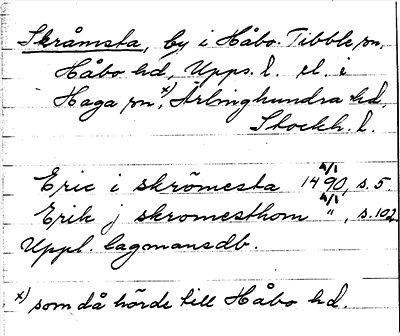 Skråmsta, by i Håbo-Tibble sn,
Håbo hd, Upps. l. el. i
Haga sn, x) Ärlinghundra hd,
Stockh. l.
Eric i skrömesta 14 4/1 90, s. 5.
Erik j skromesthom 4/1 ", s. 102
Uppl. lagmansdb.
x) som då hörde till Håbo hd.